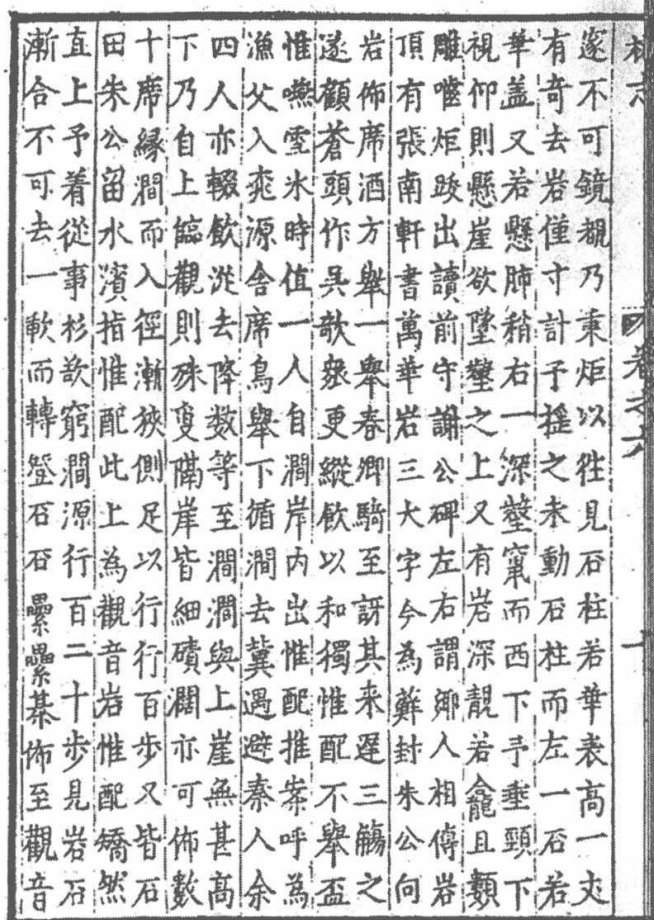 卷之六
遂不可鏡覩乃秉炬以徃見石柱若華表高一丈
有奇去岩僅寸計予揺之未動石柱而左一石若
華盖又若懸肺稍右一深壑窅而西下予垂頸下
視仰則懸崖欲墜壑之上又有岩深靚若龕且類
雕嚙炬跋出讀前守謝公碑左右謂鄉人相傳岩
頂有張南軒書萬華岩三大字今為蘚封朱公向
岩佈席酒方舉一舉春卿騎至訝其来遲三觴之
遂顧蒼頭作吳歌衆更縱飲以和獨惟配不舉盃
惟嚥雪水時值一人自澗岸内出惟配推案呼為
漁父入桃源舍席鳥舉下循澗去冀遇避秦人余
四人亦輟飲從去降数等至澗澗與上崖無甚高
下乃自上臨觀則殊变隔岸皆細磧闊亦可佈數
十席緣澗而入徑漸狹側足以行行百步又皆石
田朱公留水濱指惟配此上為觀音岩惟配矯然
直上予着從事衫欲窮澗源行百二十步見岩石
漸合不可去一軟而轉磴石石纍纍棊佈至觀音